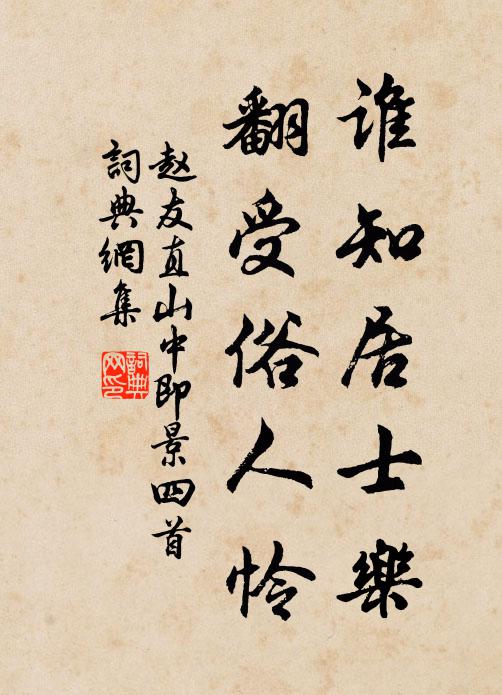 谁知居士樂
翻受俗人怜
赵友直山中即景四首
詞典網集
詞典网印